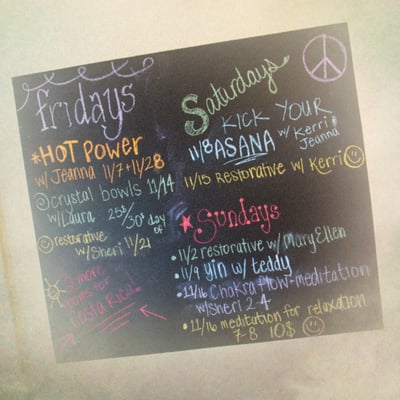 fridays
*HOT POWER
w/ Jeanna 11/7+11/28
crystal bowls 11/14
w/ Laura 25$/30$ day of
restorative
w/ Sheri 11/21
2 more
rooms for
Costa Rica!
Saturdays
KICK YOUR
11/8 ASANA w/ Kerri Jeanna
11/15 Restorative w/ Kerri
*Sundays
• 11/2 restorative w/ Mary Ellen
• 11/9 yin w/ teddy
• 11/16 Chakra flow-meditation
w/ Sheri 2-4
• 11/16 meditation for relaxation
7-8 10$